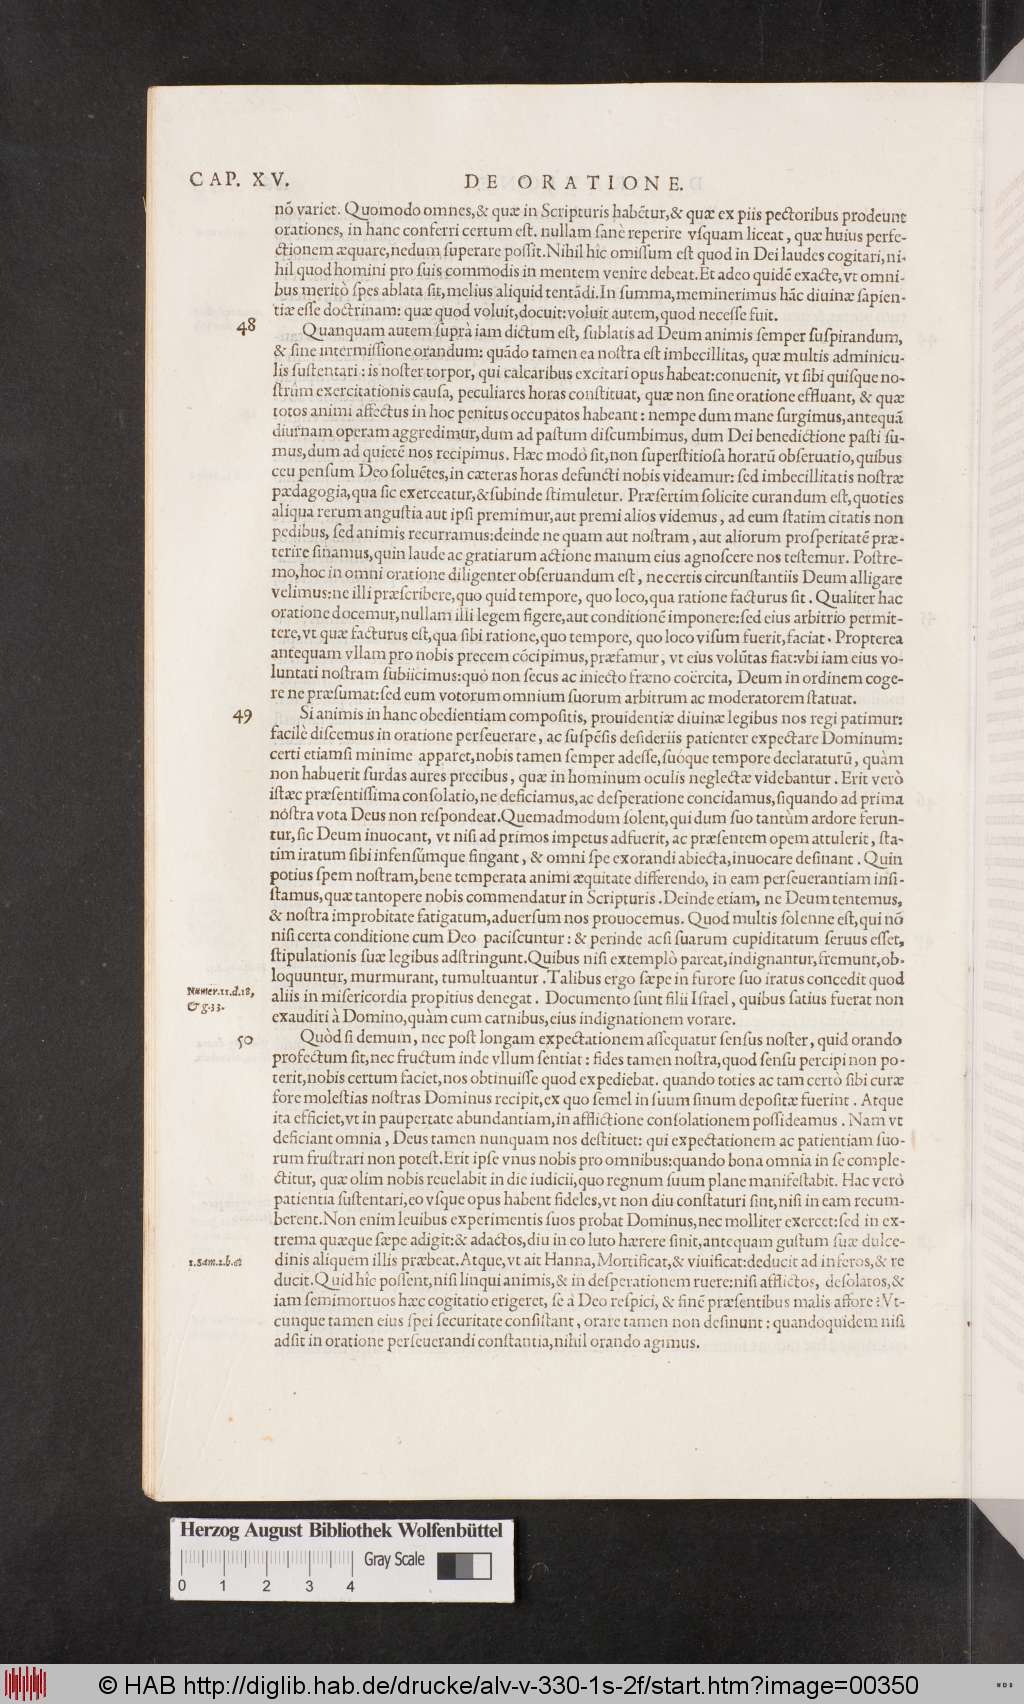 CAP. XV. DE ORATIONE.
nō variet. Quomodo omnes,& quæ in Scripturis habētur,& quæ ex piis pectoribus prodeunt
orationes, in hanc conferri certum eſt. nullam ſanè reperire vſquam liceat, quæ huius perfe-
ctionem æquare,nedum ſuperare poſſit.Nihil hîc omiſſum eſt quod in Dei laudes cogitari,ni-
hil quod homini pro ſuis commodis in mentem venire debeat.Et adeo quidē exacte,vt omni-
bus meritò ſpes ablata ſit,melius aliquid tentādi.In ſumma,meminerimus hāc diuinæ ſapien-
tiæ eſſe doctrinam: quæ quod voluit,docuit:voluit autem,quod neceſſe fuit.
48 Quanquam autem ſuprà iam dictum eſt, ſublatis ad Deum animis ſemper ſuſpirandum,
& ſine intermiſſione orandum: quādo tamen ea noſtra eſt imbecillitas, quæ multis adminicu-
lis ſuſtentari : is noſter torpor, qui calcaribus excitari opus habeat:conuenit, vt ſibi quiſque no-
ſtrûm exercitationis cauſa, peculiares horas conſtituat, quæ non ſine oratione effluant, & quæ
totos animi affectus in hoc penitus occupatos habeant : nempe dum mane ſurgimus,antequā
diurnam operam aggredimur,dum ad paſtum diſcumbimus, dum Dei benedictione paſti ſu-
mus,dum ad quietē nos recipimus. Hæc modò ſit,non ſuperſtitioſa horarū obſeruatio,quibus
ceu penſum Deo ſoluētes,in cæteras horas defuncti nobis videamur: ſed imbecillitatis noſtræ
pædagogia,qua ſic exerceatur,&ſubinde ſtimuletur. Præſertim ſolicite curandum eſt,quoties
aliqua rerum anguſtia aut ipſi premimur,aut premi alios videmus, ad eum ſtatim citatis non
pedibus, ſed animis recurramus:deinde ne quam aut noſtram, aut aliorum proſperitatē præ-
terire ſinamus,quin laude ac gratiarum actione manum eius agnoſcere nos teſtemur. Poſtre-
mo,hoc in omni oratione diligenter obſeruandum eſt, ne certis circunſtantiis Deum alligare
velimus:ne illi præſcribere,quo quid tempore, quo loco,qua ratione facturus ſit. Qualiter hac
oratione docemur,nullam illi legem figere,aut conditionē imponere:ſed eius arbitrio permit-
tere,vt quæ facturus eſt,qua ſibi ratione,quo tempore, quo loco viſum fuerit,faciat. Propterea
antequam vllam pro nobis precem cōcipimus,præfamur, vt eius volūtas fiat:vbi iam eius vo-
luntati noſtram ſubiicimus:quò non ſecus ac iniecto fræno coërcita, Deum in ordinem coge-
re ne præſumat:ſed eum votorum omnium ſuorum arbitrum ac moderatorem ſtatuat.
49 Si animis in hanc obedientiam compoſitis, prouidentiæ diuinæ legibus nos regi patimur:
facilè diſcemus in oratione perſeuerare, ac ſuſpēſis deſideriis patienter expectare Dominum:
certi etiamſi minime apparet,nobis tamen ſemper adeſſe,ſuóque tempore declaraturū, quàm
non habuerit ſurdas aures precibus, quæ in hominum oculis neglectæ videbantur. Erit verò
iſtæc præſentiſſima conſolatio,ne deficiamus,ac deſperatione concidamus,ſiquando ad prima
nóſtra vota Deus non reſpondeat.Quemadmodum ſolent,qui dum ſuo tantùm ardore ferun-
tur,ſic Deum inuocant, vt niſi ad primos impetus adfuerit, ac præſentem opem attulerit, ſta-
tim iratum ſibi infenſúmque fingant, & omni ſpe exorandi abiecta,inuocare deſinant. Quin
potius ſpem noſtram,bene temperata animi æquitate differendo, in eam perſeuerantiam inſi-
ſtamus,quæ tantopere nobis commendatur in Scripturis.Deinde etiam, ne Deum tentemus,
& noſtra improbitate fatigatum,aduerſum nos prouocemus. Quod multis ſolenne eſt,qui nō
niſi certa conditione cum Deo paciſcuntur : & perinde acſi ſuarum cupiditatum ſeruus eſſet,
ſtipulationis ſuæ legibus adſtringunt.Quibus niſi extemplò pareat,indignantur,fremunt,ob-
loquuntur, murmurant, tumultuantur. Talibus ergo ſæpe in furore ſuo iratus concedit quod
Numer.11.d.18, aliis in miſericordia propitius denegat. Documento ſunt filii Iſrael, quibus ſatius fuerat non
& g.33. exauditi à Domino,quàm cum carnibus,eius indignationem vorare.
50 Quòd ſi demum, nec poſt longam expectationem aſſequatur ſenſus noſter, quid orando
profectum ſit,nec fructum inde vllum ſentiat : fides tamen noſtra,quod ſenſu percipi non po-
terit,nobis certum faciet,nos obtinuiſſe quod expediebat. quando toties ac tam certò ſibi curæ
fore moleſtias noſtras Dominus recipit,ex quo ſemel in ſuum ſinum depoſitæ fuerint. Atque
ita efficiet,vt in paupertate abundantiam,in afflictione conſolationem poſſideamus. Nam vt
deficiant omnia, Deus tamen nunquam nos deſtituet: qui expectationem ac patientiam ſuo-
rum fruſtrari non poteſt.Erit ipſe vnus nobis pro omnibus:quando bona omnia in ſe comple-
ctitur, quæ olim nobis reuelabit in die iudicii,quo regnum ſuum plane manifeſtabit. Hac verò
patientia ſuſtentari,eo vſque opus habent fideles,vt non diu conſtaturi ſint,niſi in eam recum-
berent.Non enim leuibus experimentis ſuos probat Dominus,nec molliter exercet:ſed in ex-
trema quæque ſæpe adigit:& adactos,diu in eo luto hærere ſinit,antequam guſtum ſuæ dulce-
1.Sam.2.b.6 dinis aliquem illis præbeat.Atque,vt ait Hanna,Mortificat,& viuificat:deducit ad inferos,& re
ducit.Quid hîc poſſent,niſi linqui animis,& in deſperationem ruere:niſi afflictos, deſolatos,&
iam ſemimortuos hæc cogitatio erigeret, ſe à Deo reſpici, & finē præſentibus malis affore? Vt-
cunque tamen eius ſpei ſecuritate conſiſtant, orare tamen non deſinunt : quandoquidem niſi
adſit in oratione perſeuerandi conſtantia,nihil orando agimus.
Herzog August Bibliothek Wolfenbüttel
Gray Scale
0 1 2 3 4
© HAB http://diglib.hab.de/drucke/alv-v-330-1s-2f/start.htm?image=00350